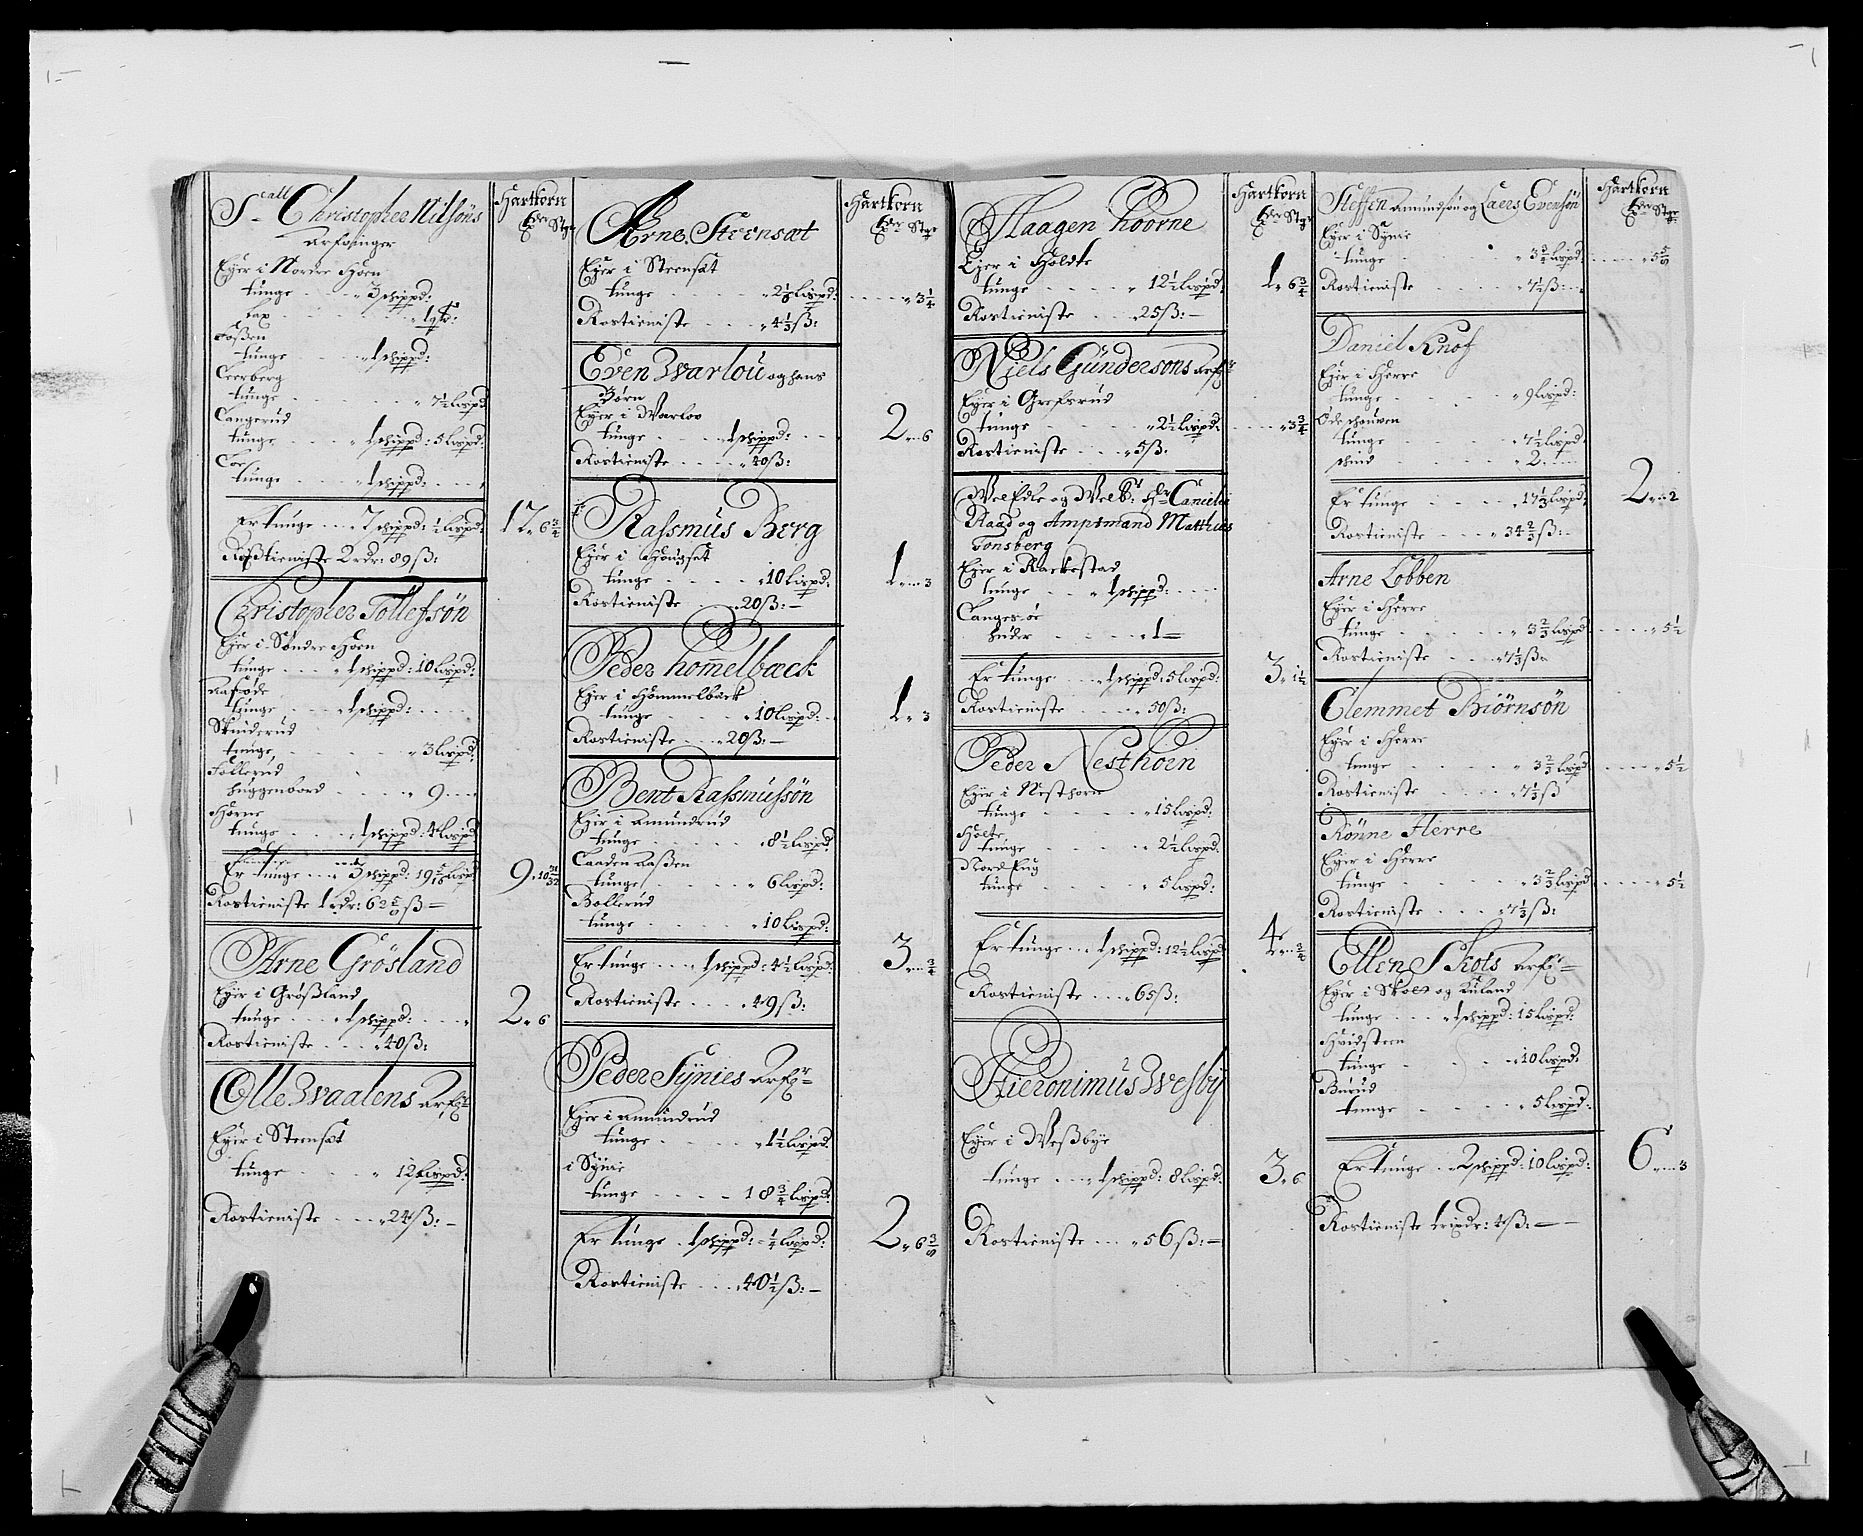 Sal. Christopher Nilsöns
Arfvinger
Hartkorn
Eyer i Nordre Hoen
tunge . . . 3 schippd:
lax . . . 1 qt:
Foßen
tunge . . . 1 schippd:
Leerberg
tunge . . . 7½ lispd
Langerud
tunge . . . 1 schippd: 5 lispd:
tunge . . . 1 schippd:
Er tunge . . . 7 schippd: ½ lispd: 17 „ 6 ¾
Roßtieniste 2 rdr: 89 ß:
Christopher Tollefsön
Eyer i Söndre Hoen
tunge . . . 1 schippd: 10 lispd:
tunge . . . 1 schippd:
Skinderud
tunge . . . 3 lispd:
Follerud
huggenbord . . . 9
Horne
tunge . . . 1 schippd: 4 lispd
Er tunge . . . 3 schippd: 19 5/16 lispd
Rostieniste 1 rdr: 62 5/8 ß
Arne Grösland
Eyer i Größland
tunge . . . 1 schippd: 2 „ 6
Rostieniste . . . 40 ß:
Olle Waalens Arf:
Eyer i Steensæt
tunge . . . 12 lispd:
Rostieniste . . . 24 ß:
Hartkorn
Arne Steensæt
Eyer i Steensæt
tunge . . . 2 lispd: 3 ¼
Rostieniste . . . 4⅓ ß:
Even Warlou og hans
Börn
Eyer i Warloo
tunge . . . 1 schippd: 2 „ 6
Rostieniste . . . 40 ß:
Rassmus Berg
Eyer i Hougsæt
tunge . . . 10 lispd: 1 „ 3
Rostieniste . . . 20 ß:
Peder homelbæck
Eyer i Hommelbæck
tunge . . . 10 lispd: 1 „ 3
Rostieniste . . . 20 ß:
Bent Rassmussön
Eyer i Amundrud
tunge . . . 8½ lispd:
Laaden Aaßen
tunge . . . 6 lispd:
Bollerud
tunge . . . 10 lispd:
Er tunge . . . 1 schippd: 4½ lispd: 3 „ ¾
Rostieniste . . . 49 ß:
Peder Synies Arf:
Eyer i Amundrud
tunge . . . 1½ lispd:
i Synie
tunge . . . 18 ¾ lispd:
Er tunge . 1 schippd: ¼ lispd: 2 „ 6 ⅜
Rostieniste . . . 40½ ß:
Hartkorn
Haagen hoorne
Eyer i Holdte
tunge . . . 12½ lispd: 1 „ 6 ¾
Rostieniste . . . 25 ß:
Niels Gundersons Arf:
Eyer i Grefsrud
tunge . . . 2½ lispd: 3 ¾
Rostieniste . . . 5 ß:
WelEdle og Welb: Hr Cancelie
Raad og Amptmand Matthias
Tonsberg
Eyer i Rackestad
tunge . . . 1 schippd:
Langes öe
huder . . . 1
Er tunge . . . 1 schippd: 5 lispd: 3 „ 1½
Rostieniste . . . 50 ß:
Peder Nesthoen
Eyer i Nesthorn
tunge . . . 15 lispd:
Holte
tunge . . . 2½ lispd:
Nord Eng
tunge . . . 5 lispd:
Er tunge . . . 1 schippd: 12½ lispd: 4 „ ¾
Rostieniste . . . 65 ß:
Hieronimus Wesby
Eyer i Weßbye
tunge . . . 1 schippd: 8 lispd: 3 „ 6
Rostieniste . . . 56 ß:
Hartkorn
Steffen Amundsön og Laers Evensön
Eyer i Synie
tunge . . . 3 ¾ lispd: 5 ⅝
Rostieniste . . . 7½ ß:
Daniel Knof
Eyer i Herre
tunge . . . 9 lispd:
Öde schouven
tunge . . . 7½ lispd:
schind . . . 2
Er tunge . . . 17⅓ lispd: 2 „ 2
Rostieniste . . . 34⅔ ß:
Arne Lobben
Eyer i Herre
tunge . . . 3⅔ lispd: 5½
Rostieniste . . . 7⅓ ß
Clemmet Biörnsön
Eyer i Herre
tunge . . . 3⅔ lispd 5½
Rostieniste . . . 7⅓ ß
Rönne Herre
Eyer i Herre
tunge . . . 3⅔ lispd 5½
Rostieniste . . . 7⅓ ß:
Ellen Skots Arf:
Eyer i Skoes og Ruland
tunge . . . 1 schippd: 15 lispd:
Hvidsteen
tunge . . . 10 lispd:
Burud
tunge . . . 5 lispd:
Er tunge . . 2 schippd: 10 lispd: 6 „ 3
Rostieniste 1 ripdr: 4 ß: